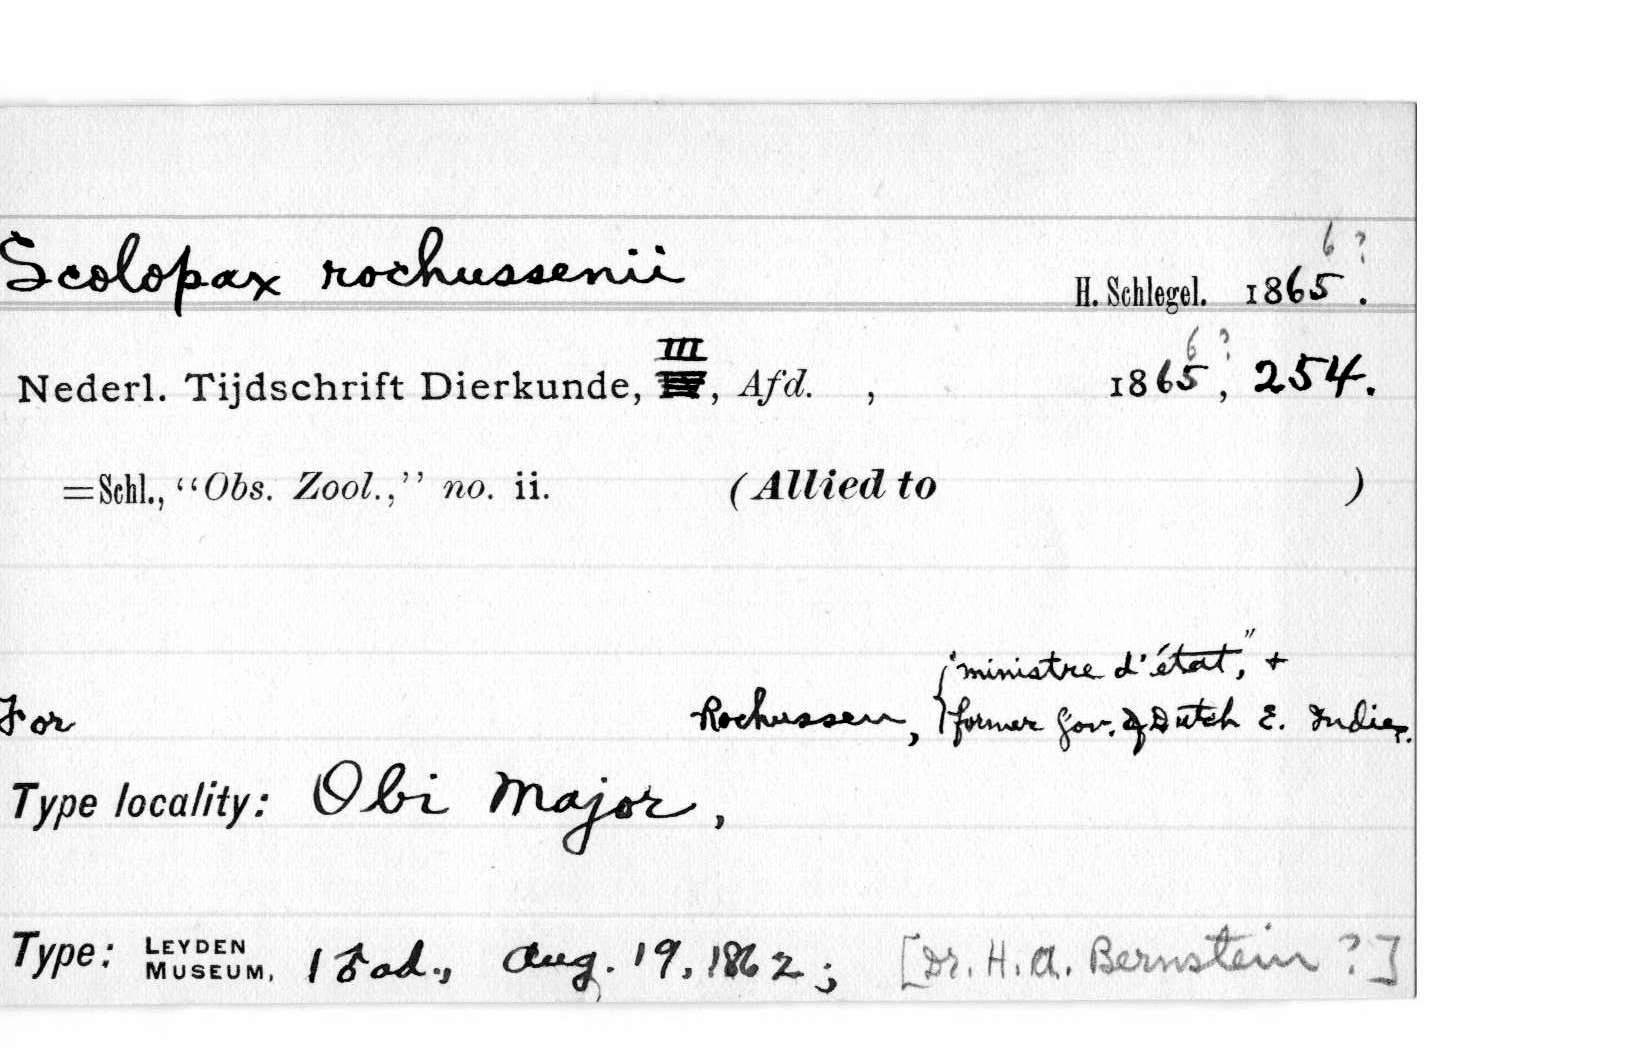 6 ?
Scolopax rochussenii H. Schlegel. 1865.
III 6 ?
Nederl. Tijdschrift Dierkunde, IV, Afd. , 1865, 254.
=Schl., “Obs. Zool.,” no. ii. (Allied to )
"ministre d'état," +
For Rochussen, {former Gov. of Dutch E. Indies.
Type locality: Obi Major,
Type: LEYDEN MUSEUM, 1 ♂ ad., Aug. 19, 1862; [Dr. H. A. Bernstein ?]